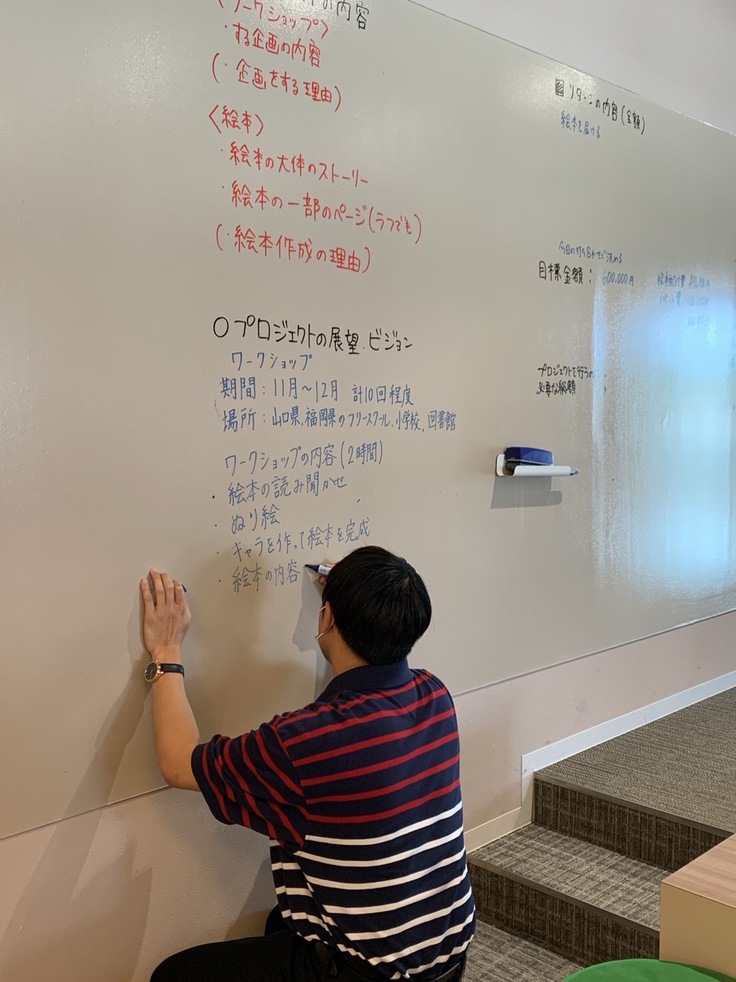 〈ワークショップ〉の内容
・する企画の内容
(・企画をする理由)
〈絵本〉
・絵本の大体のストーリー
・絵本の一部のページ(うつでも)
(・絵本作成の理由)
○プロジェクトの展望、ビジョン
ワークショップ
期間：11月〜12月 計10回程度
場所：山口県、福岡県のフリースクール、小学校、図書館
ワークショップの内容(2時間)
・絵本の読み聞かせ
・ぬり絵
・キャラを作って絵本を完成
・絵本の内容
リターンの内容(金額)
絵本を届ける
目標金額： 600,000円
プロジェクトを行う
必要な総額：